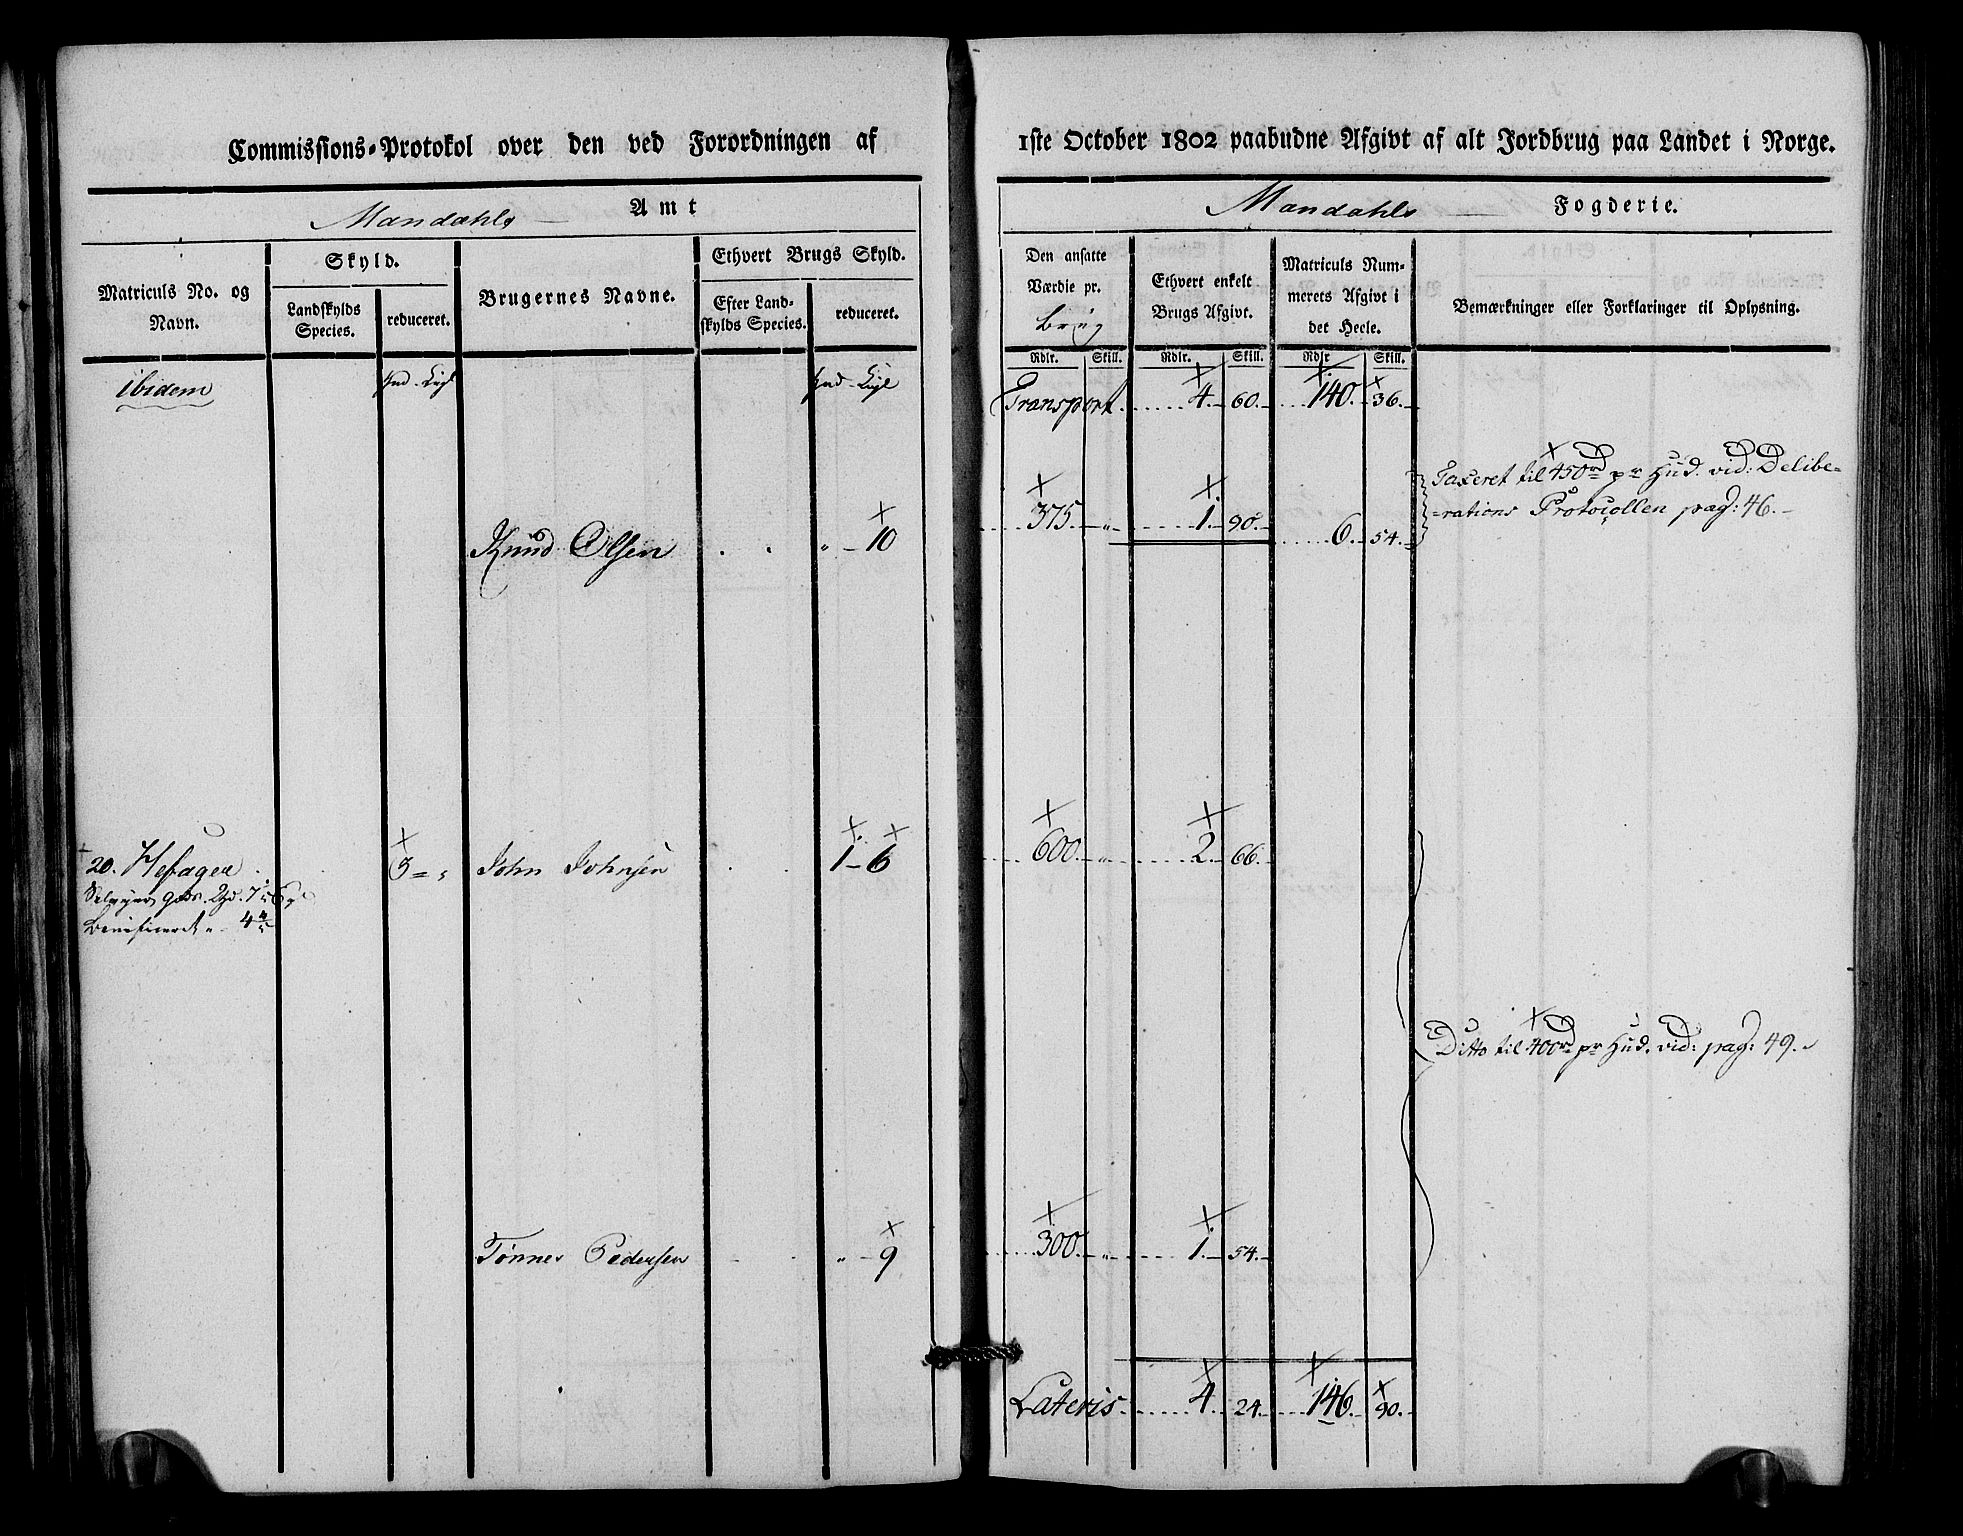 Commissions-Protokol over den ved Forordningen af
1ste October 1802 paabudne Afgivt af alt Jordbrug paa Landet i Norge.
Mandahls Amt
Mandahls Fogderie.
Matriculs No. og Navn.
Skyld.
Landskylds Species.
reduceret.
Brugernes Navne.
Ethvert Brugs Skyld.
Efter Landskylds Species.
reduceret.
Den ansatte Værdie pr. Brug
Ethvert enkelt Brugs Afgivt.
Matriculs Nummerets Afgivt i det Heele.
Bemærkninger eller Forklaringer til Oplysning.
Rdlr. Skill. Rdlr. Skill. Rdlr Skill.
ibidem
Transport 4. 60. 140. 36.
Knud Olsen " 10 375. " 1. 90. 6. 54.
Taxeret til 450rd pr Hud. vid: Delibe-
-rations Protocollen pag: 46.
20. 3 = " John Johnsen 1 - 6 600. " 2. 66.
Beneficeret " 4
Ditto til 400rd pr Hud. vid: pag: 49.
Tønnes Pedersen " 9 300. " 1. 54.
Lateris 4. 24. 146. 90.